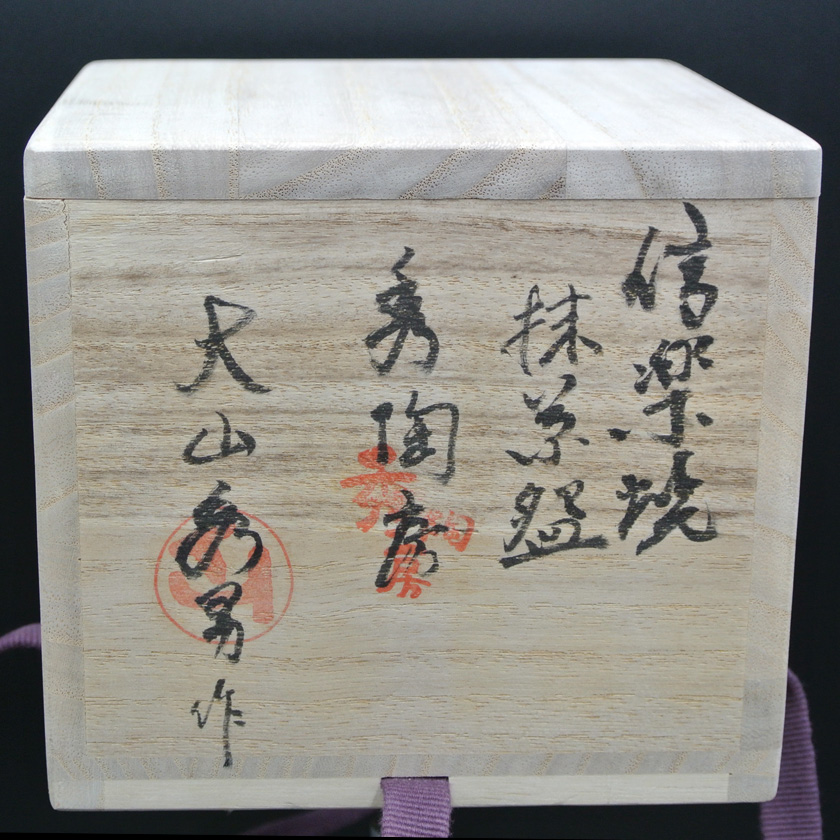 信楽焼
抹茶盌
秀陶房
大山秀男作
秀陶房